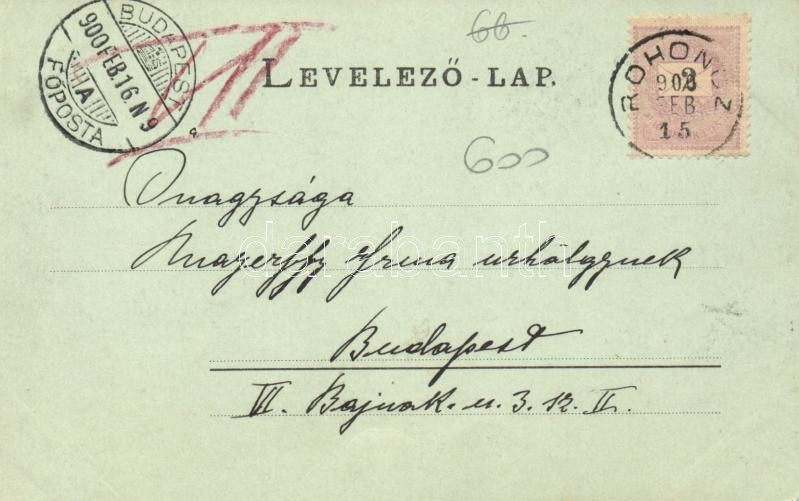 66.
LEVELEZŐ-LAP.
BUDAPEST
900 FEB. 16. N 9
FŐPOSTA
ROHONCZ
FEB
15
600
Onagysága
Irma urhölgynek
Budapest
VI. Bajnok-u. 3. 12. II.
darabanth